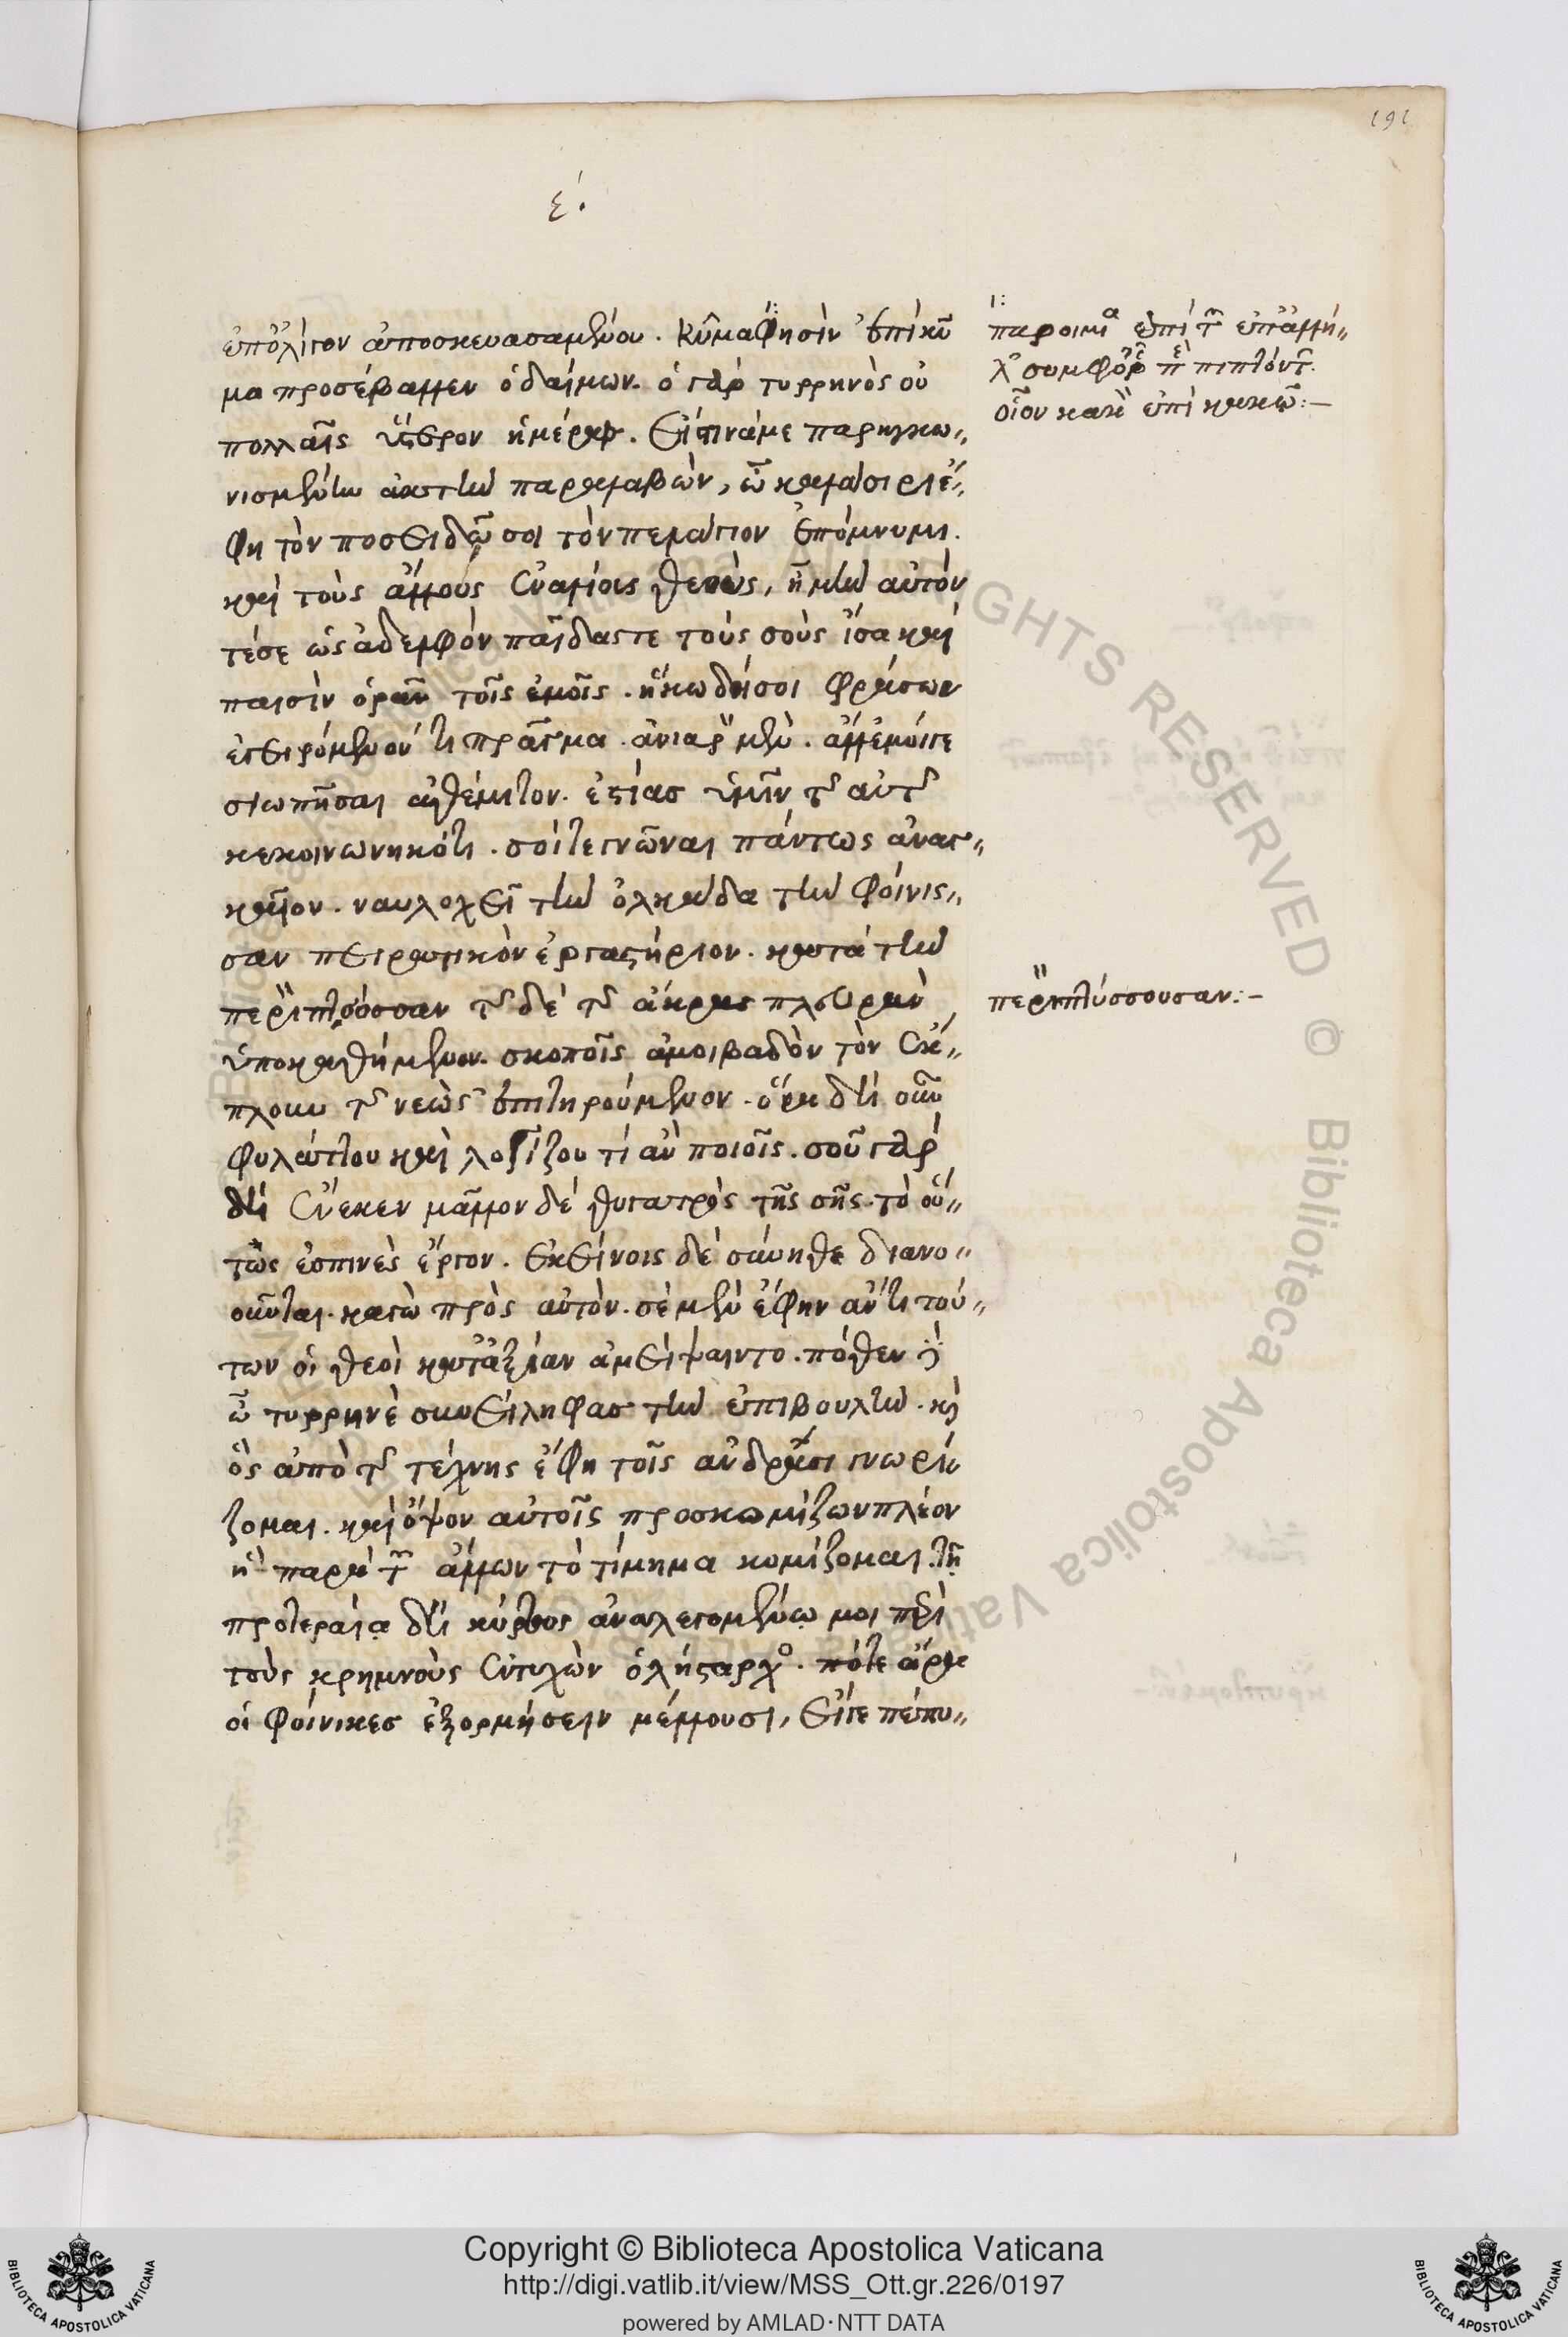 191
ε´.
ἐπ᾽ ὀλίγον ἀποσκευασαμένου. κῦμα φησὶν ἐπὶ κῦ
μα προσέβαλλεν ὁ δαίμων. ὁ γὰρ τυρρηνὸς οὐ
πολλαῖς ὕστερον ἡμέραις. παρηγκω„
νισμένῳ ἀκτὴν παραλαβών, ὦ καλάσιρι ἔ„
φη τὸν ποσειδῶ σοι τὸν πελάγιον ἐπόμνυμι.
καὶ τοὺς ἄλλους ἐναλίους θεούς, ἦ μὴν αὐτόν
τέ σε ὡς ἀδελφὸν παῖδάς τε τοὺς σοὺς ἴσα καὶ
παισὶν ὁρᾶν τοῖς ἐμοῖς. ἥκω δή σοι φράσων
ἐγειρόμενόν τι πρᾶγμα. ἀνιαρὸν μέν. ἀλλ᾽ ἐμοί τε
σιωπῆσαι ἀθέμιτον. ἑστίας ὑμῖν τῆς αὐτῆς
κεκοινωνηκότι. σοί τε γνῶναι πάντως ἀναγ„
καῖον. ναυλοχεῖ τὴν ὁλκάδα τὴν φοίνισ„
σαν πειρατικὸν ἐργαστήριον. κατὰ τὴν
τῆς δὲ τῆς ἄκρας πλευρὰν
ὑποκαθήμενον. σκοποῖς ἀμοιβαδὸν τὸν ἔκ„
πλουν τῆς νεὼς ἐπιτηρούμενον. ὅρα δὴ οὖν
φυλάττου καὶ λογίζου τί ἂν ποιοῖς. σοῦ γὰρ
δὴ ἕνεκεν μᾶλλον δὲ θυγατρὸς τῆς σῆς. τὸ οὕ„
τως ἔργον. ἐκείνοις δὲ σύνηθες διανο„
οῦνται. κἀγὼ πρὸς αὐτόν. σὲ μὲν ἔφην ἀντὶ τού„
των οἱ θεοὶ κατ᾽ ἀξίαν ἀμείψαιντο. πόθεν δὲ
ὦ τυρρηνὲ συνείληφας τὴν ἐπιβουλήν. καὶ
ὃς ἀπὸ τῆς τέχνης ἔφη τοῖς ἀνδράσι γνωρί
ζομαι. καὶ ὄψον αὐτοῖς προσκομίζων πλέον
ἢ παρὰ τῶν ἄλλων τὸ τίμημα κομίζομαι. τῇ
προτεραίᾳ δὴ κύρτους ἀναλεγομένῳ μοι περὶ
τοὺς κρημνοὺς ἐντυχὼν ὁ λήσταρχος. πότε ἄρα
οἱ φοίνικες ἐξορμήσειν μέλλουσι, εἴ γε πέπυ„
παροιμία ἐπὶ τῶν ἐπαλλή„
λων συμφοραῖς περιπιπτόντων.
οἷον κακὰ ἐπὶ κακῶν:–
περιπτύσσουσαν:–
Copyright © Biblioteca Apostolica Vaticana
http://digi.vatlib.it/view/MSS_Ott.gr.226/0197
powered by AMLAD·NTT DATA
BIBLIOTECA APOSTOLICA VATICANA
BIBLIOTECA APOSTOLICA VATICANA